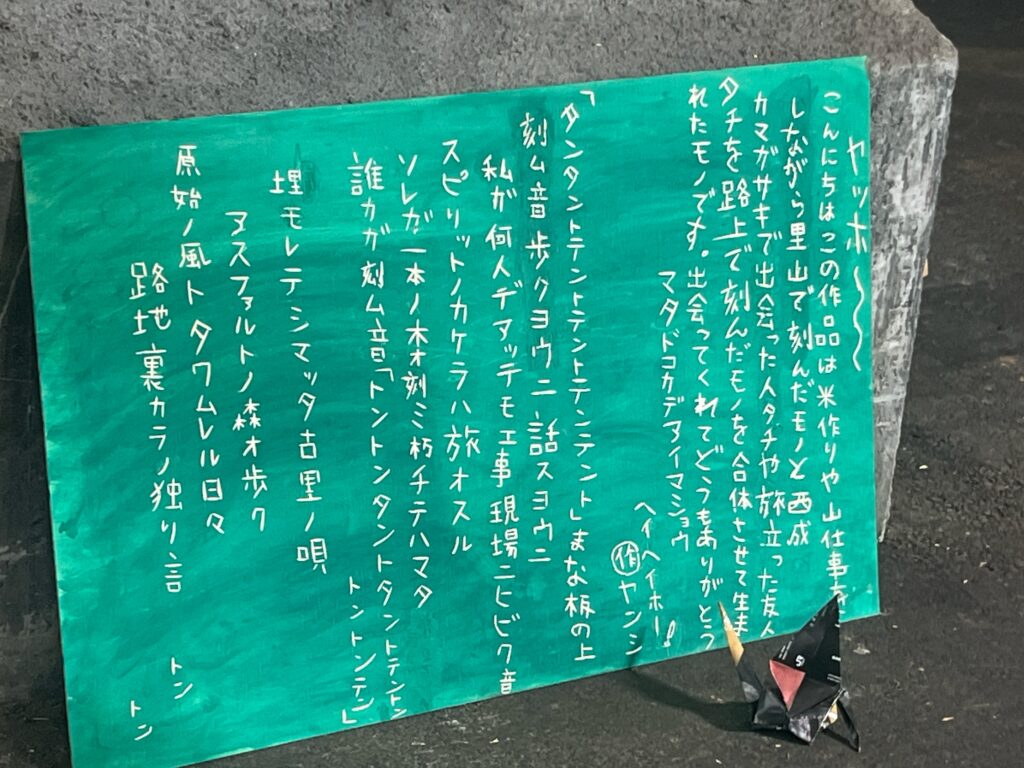 ヤッホ〜〜〜
こんにちはこの作品は米作りや山仕事を
しながら里山で刻んだモノと西成
カマガサキで出会った人タチや旅立った友人
タチを路上で刻んだモノを合体させて生ま
れたモノです。出会ってくれてどうもありがとう
マタドコカデアイマショウ
ヘイヘイホー!
作ヤンシ
「タンタントテントテントテンテントしまな板の上
刻ム音歩クヨウニ話スヨウニ
私ガ何人デアッテモ工事現場ニヒビク音
スピリットノカケラハ旅オスル
ソレガ一本ノ木オ刻ミ朽チテハマタ
誰カガ刻ム音「トントンタントタントテントン
トントンテン」
埋モレテシマッタ古里ノ唄
アスファルトノ森オ歩ク
原始ノ風トタワムレル日々
路地裏カラノ独り言
トン
トン